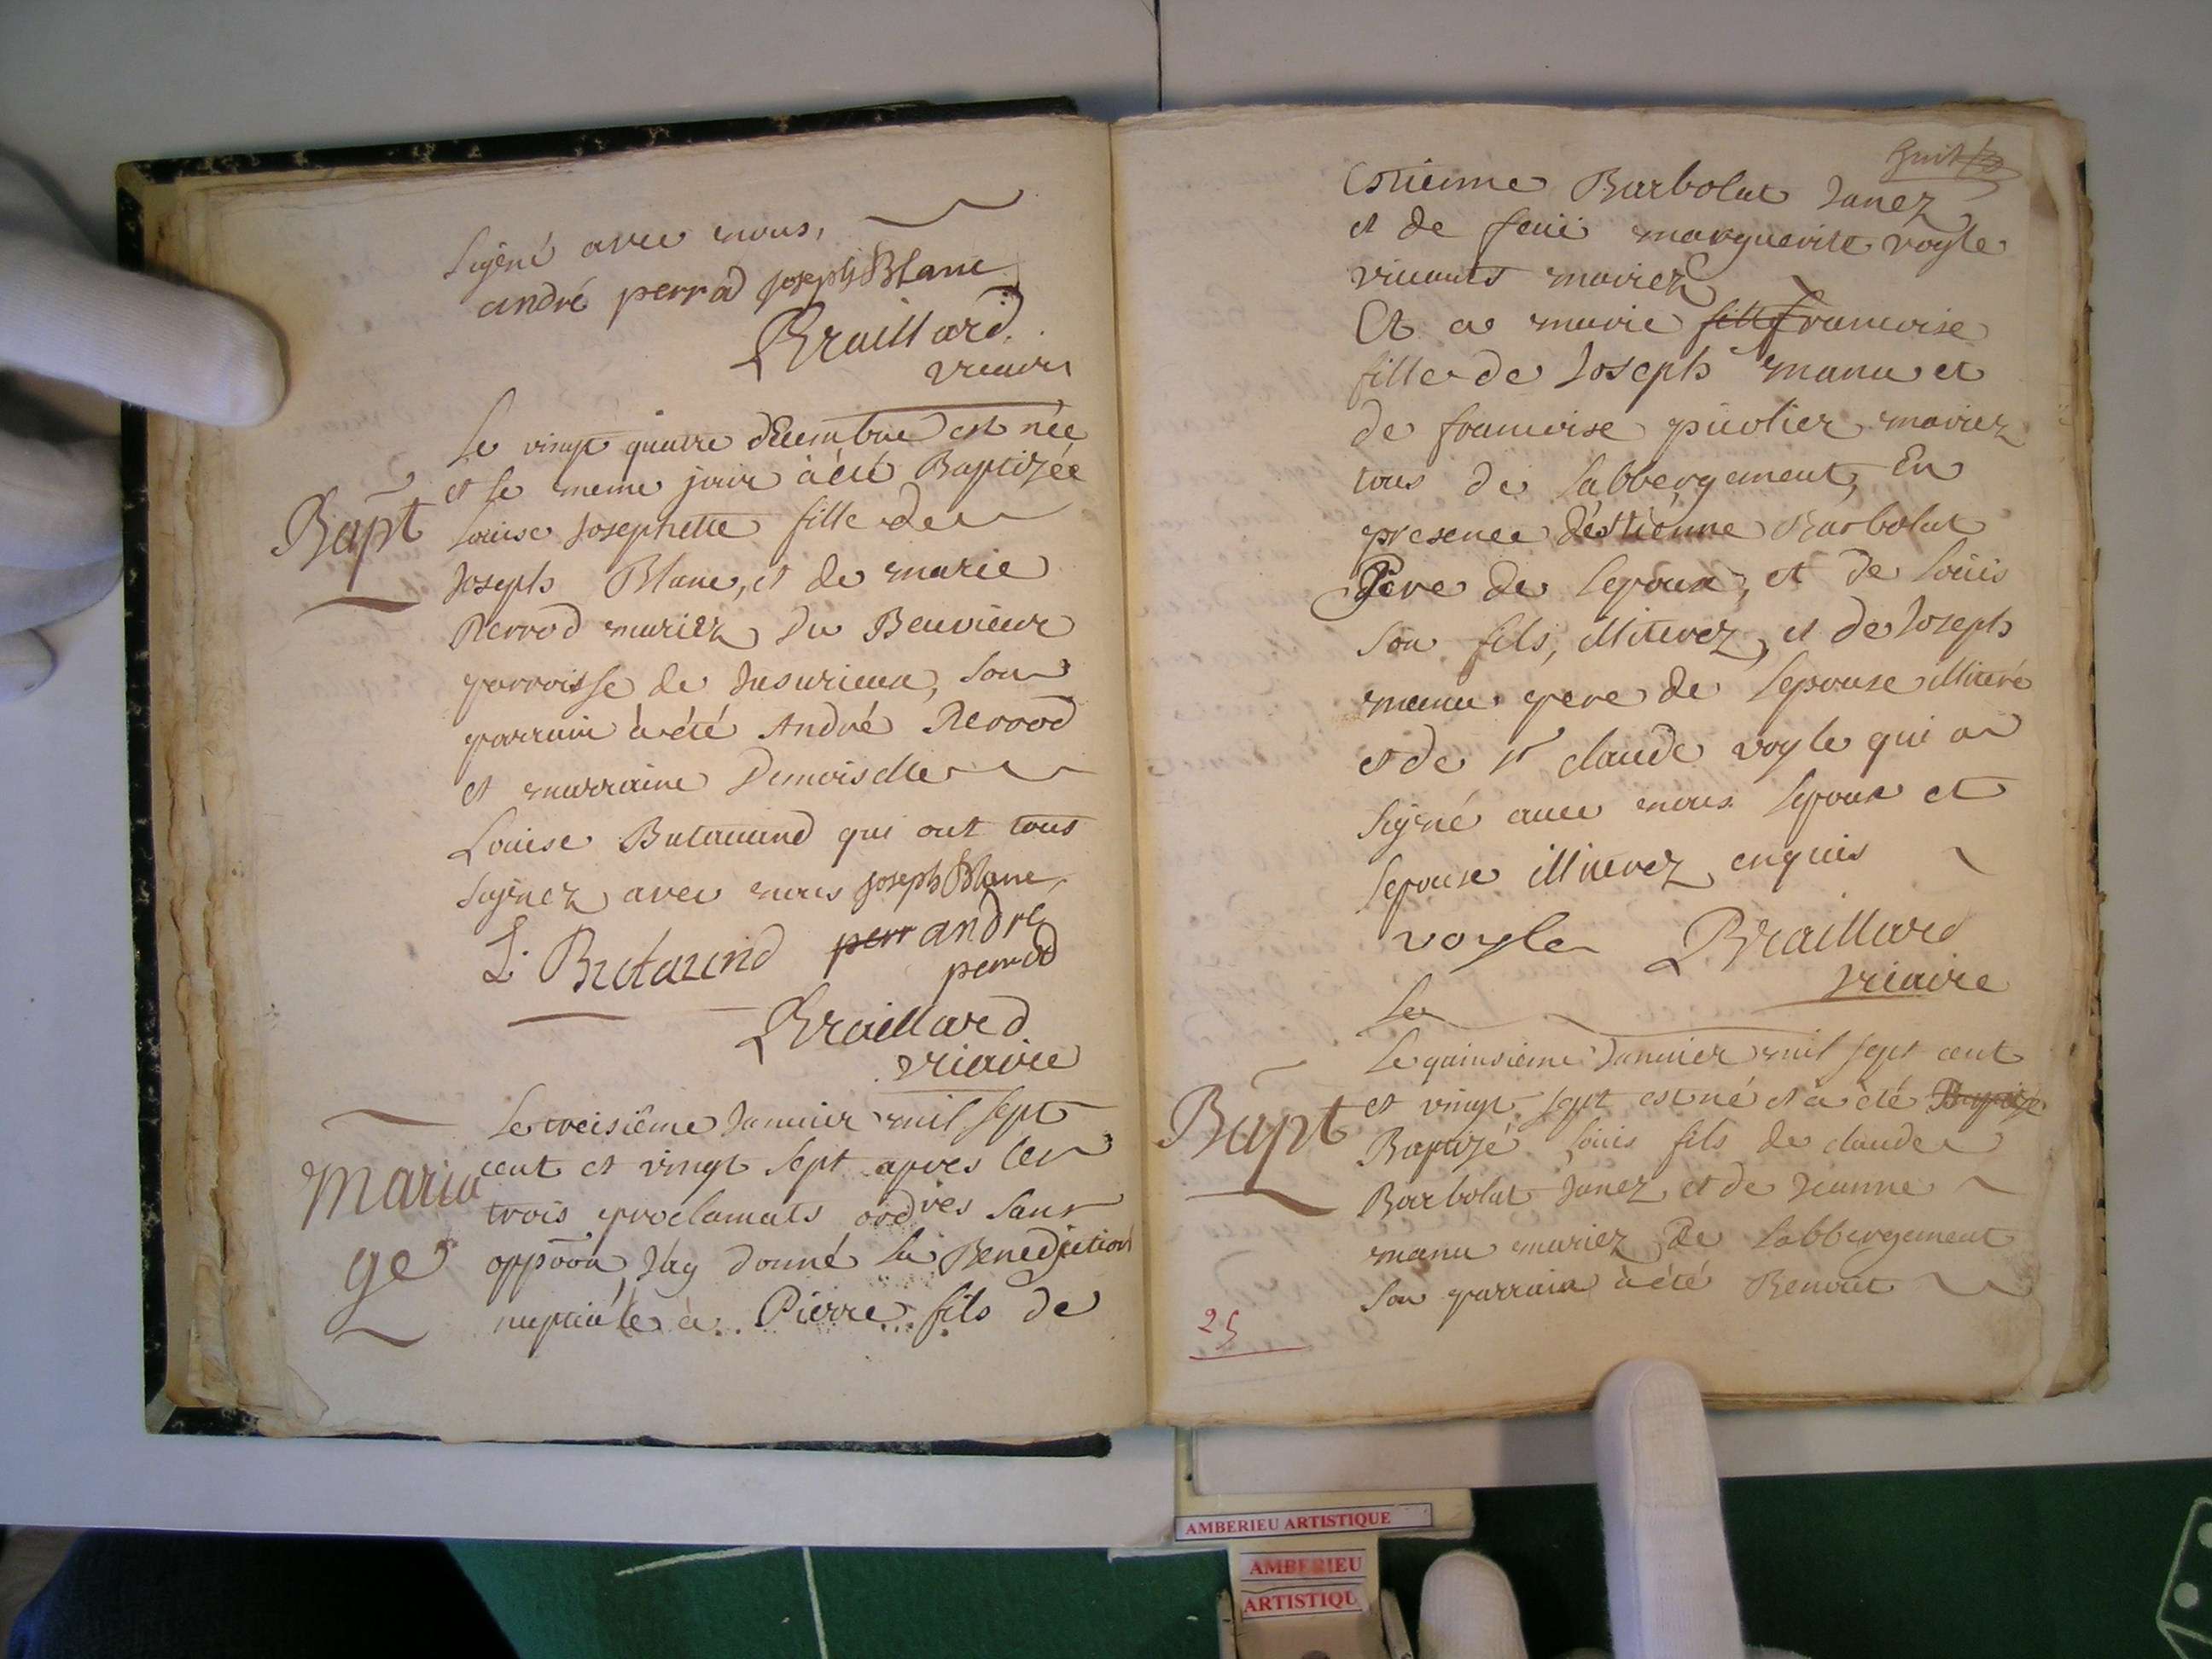 signé avec nous,
andré perrad joseph Blanc
Braillard
vicaire
Le vingt quatre decembre est née
et le meme jour à été Baptizée
Bapt
Louise Josephette fille de
Joseph Blanc, et de marie
Perrod mariez du Beuvieur
parroisse de Jusurieux, son
parrain à été André Perrod
et marraine Demoiselle
Louise Butavand qui ont tous
signez avec nous joseph Blanc
L. Butavand perr andre
perrod
Braillard
vicaire
Le treisième Janvier mil sept
cent et vingt sept apres les
Maria
trois proclamats ordres sans
ge
oppoon J'ay donné la Benediction
nuptiale à Pierre fils de
huit
Estienne Barbolat Janez
et de feüe marguerite vogle
vivants mariez
Et a marie fille francoise
fille de Joseph manu et
de francoise mariez
tous de Labbergement, En
presence d'éstienne Barbolat
Pere de lepoux, et de Loüis
son fils, illiterez, et de Joseph
manu pere de lepouse illiteré
et de Sr claude vogle qui a
signé avec nous lepoux et
lepouse illiterez enquis
vogle Braillard
vicaire
Le
Le quinsieme Janvier mil sept cent
et vingt sept est né et à été Baptizé
Bapt
Baptizé Loüis fils de claude
Barbolat Janez et de Jeanne
manu mariez de Labbergement
son parrain à été Benoit
25
AMBERIEU ARTISTIQUE
AMBERIEU
ARTISTIQU